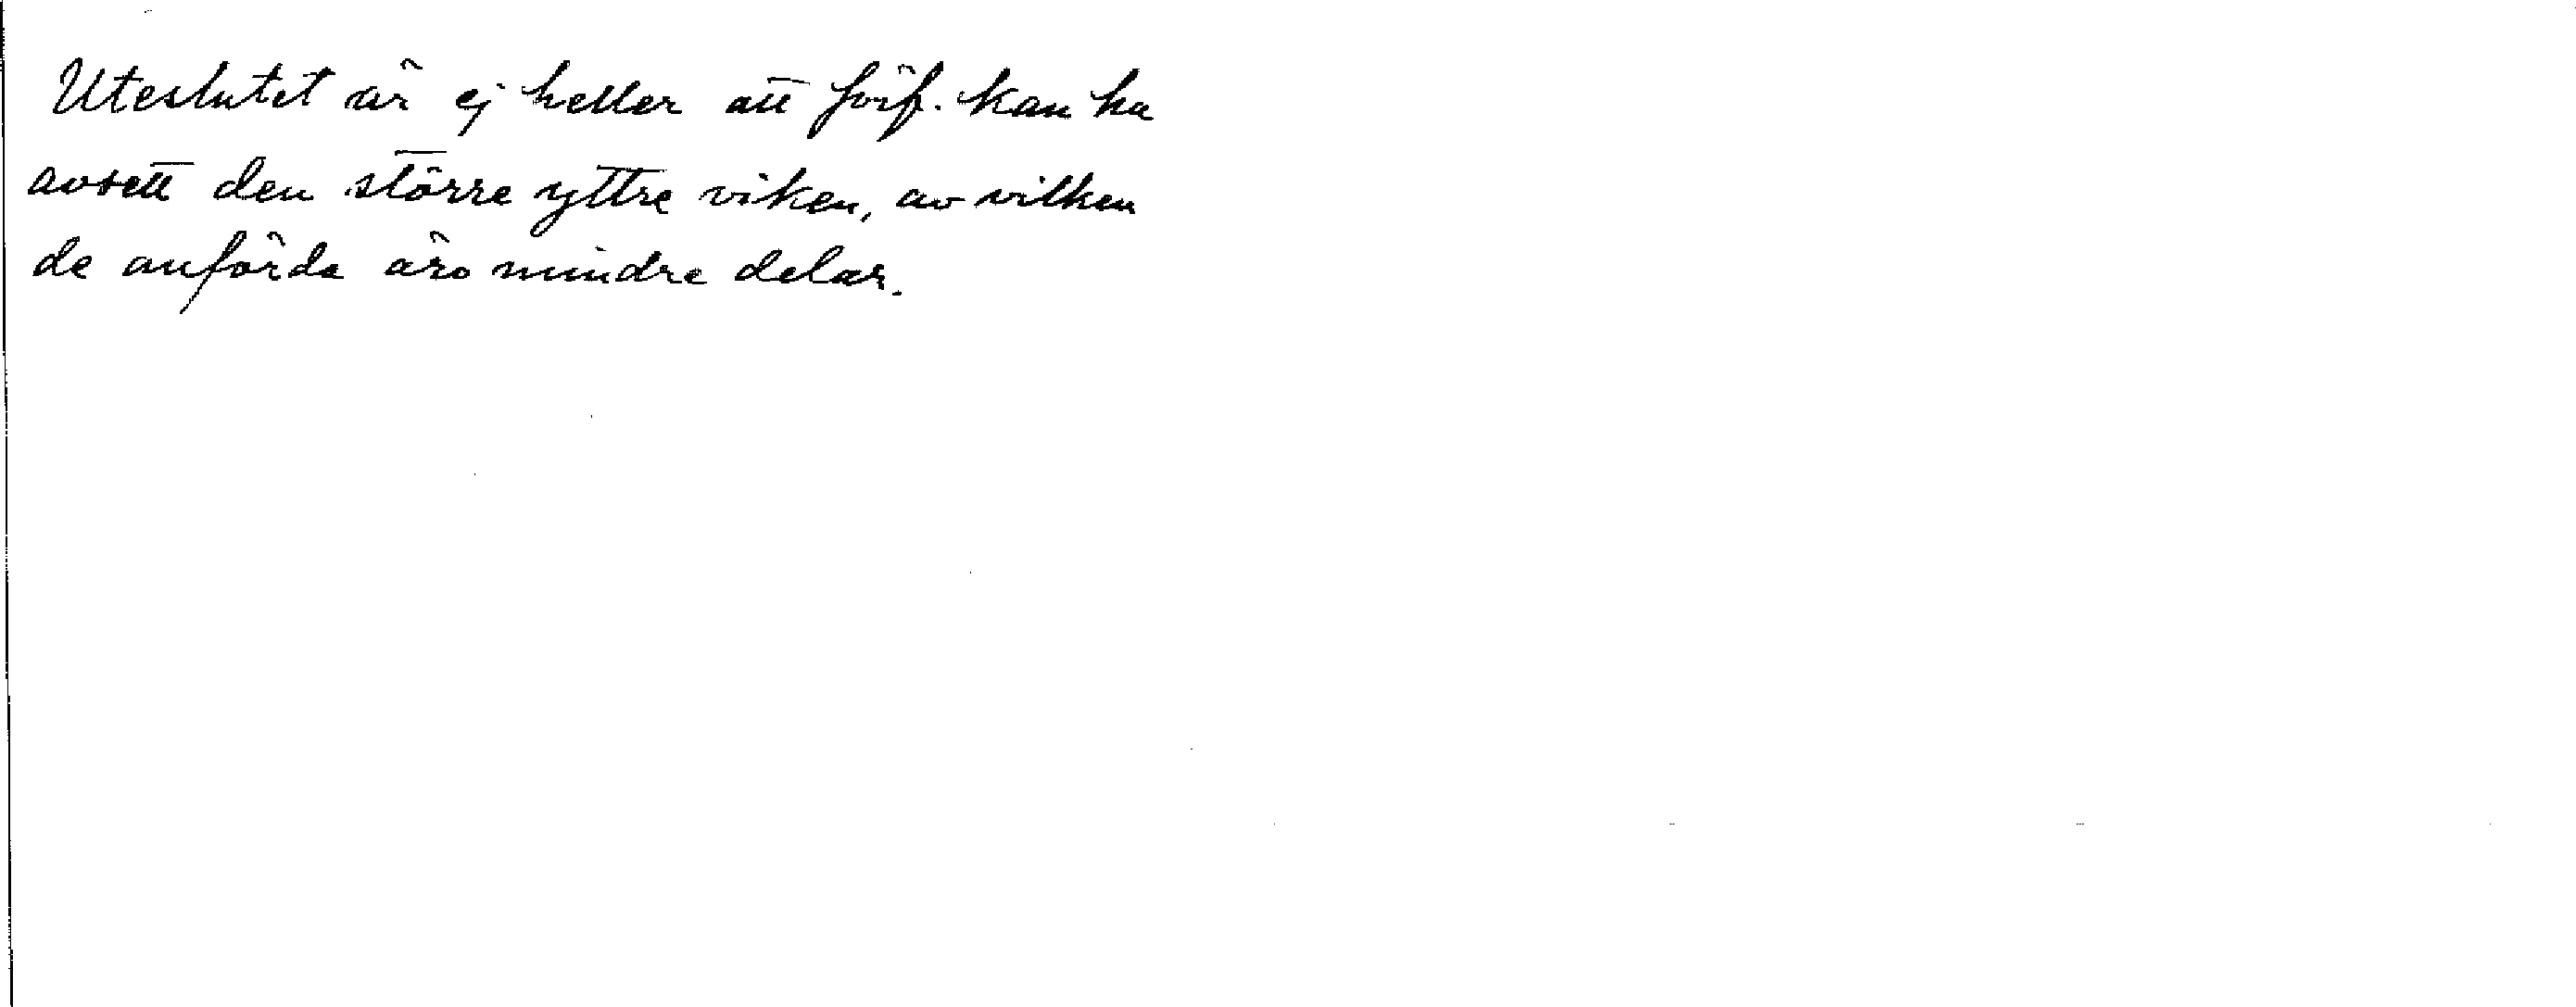 Uteslutet är ej heller att förf. kan ha
avsett den större yttre viken, av vilken
de anförda äro mindre delar.